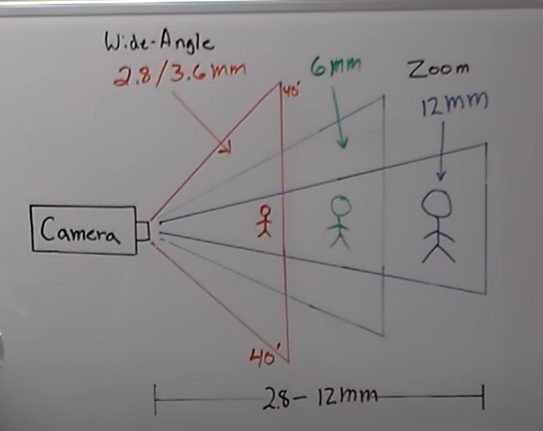 Wide-Angle
2.8/3.6mm
6mm
Zoom
12mm
40'
Camera
40'
2.8-12mm